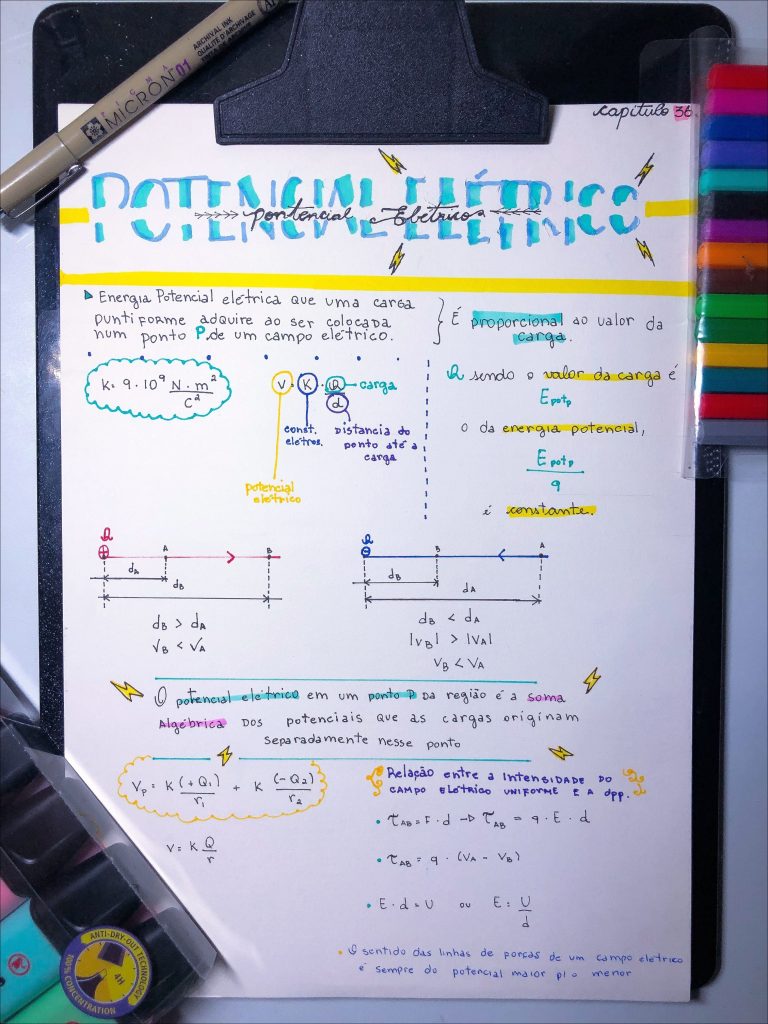 ARCHIVAL INK
QUALITÉ D'ARCHIVAGE
MICRON 01
capítulo 36
POTENCIAL ELÉTRICO
Pontencial Elétricos
Energia Potencial elétrica que uma carga
puntiforme adquire ao ser colocada
num ponto P, de um campo elétrico.
É proporcional ao valor da
carga.
K = 9 · 10⁹ N · m² / C²
V = K · Q / d
carga
const. eletros.
Distancia do ponto até a carga
potencial elétrico
Q sendo o valor da carga é
E potp
o da energia potencial,
E potp / q
é constante.
Q ⊕ A B
dA
dB
dB > dA
VB < VA
Q ⊖ B A
dB
dA
dB < dA
|VB| > |VA|
VB < VA
O potencial elétrico em um ponto P da região é a soma
Algébrica dos potenciais que as cargas originam
separadamente nesse ponto
Vp = K (+Q₁) / r₁ + K (-Q₂) / r₂
V = K Q / r
Relação entre a intensidade do
campo elétrico uniforme e a dpp.
• τAB = F · d → τAB = q · E · d
• τAB = q · (VA - VB)
• E · d = U ou E = U / d
• O sentido das linhas de forças de um campo elétrico
é sempre do potencial maior p/ o menor
ANTI-DRY-OUT TECHNOLOGY
100% CONCENTRATION